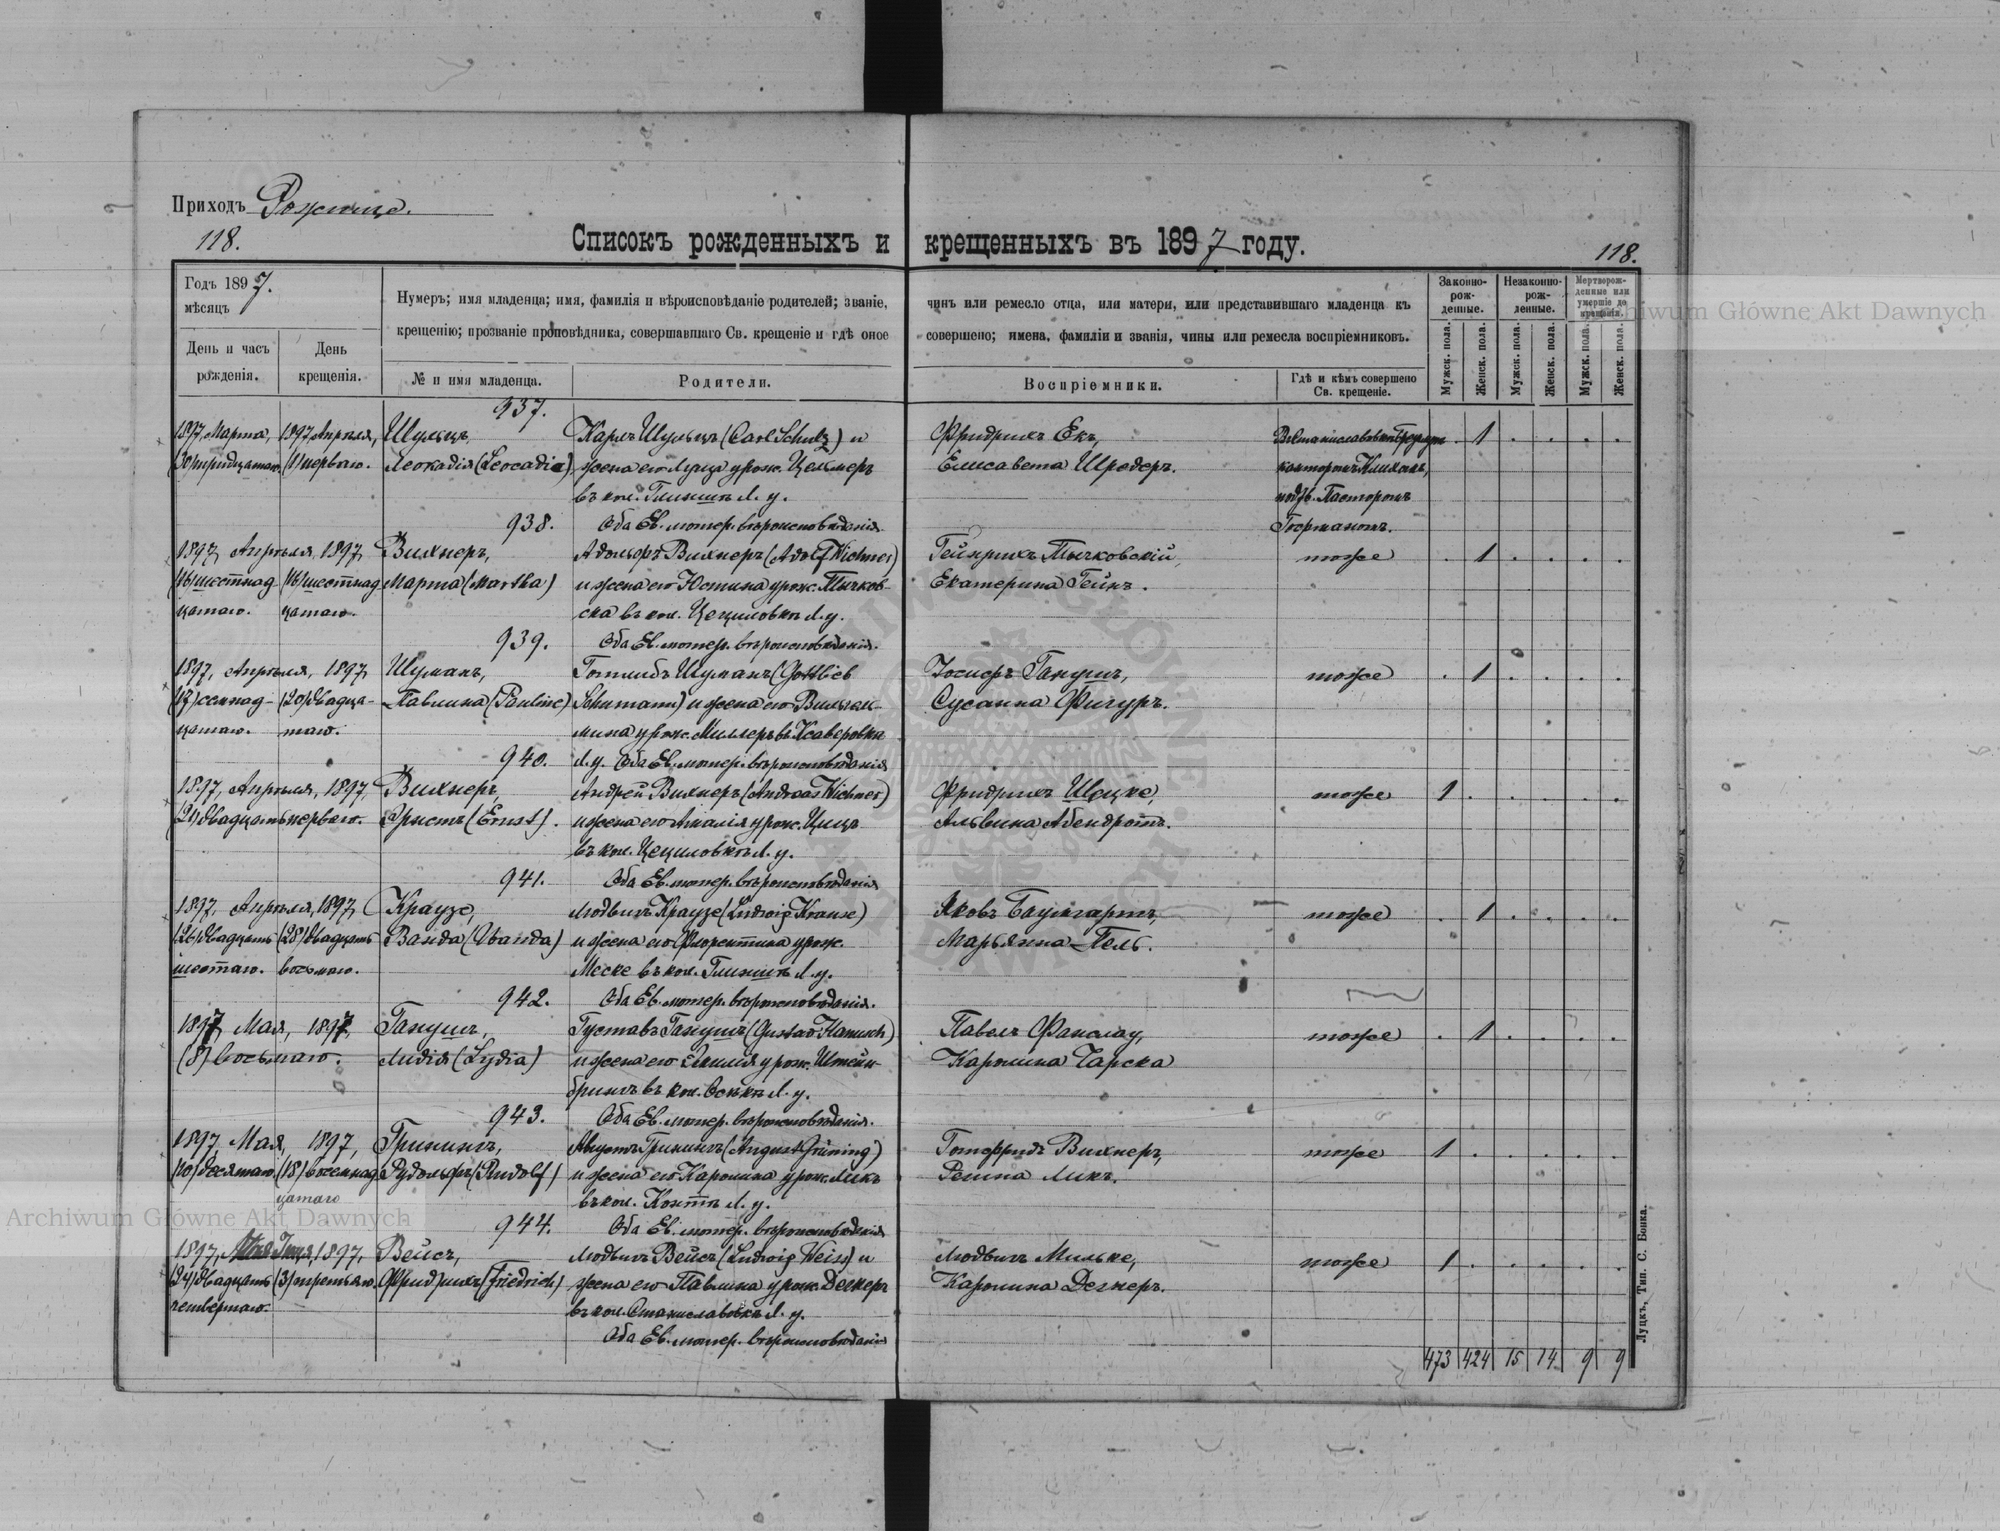 Приходъ Рожище.
118.
Списокъ рожденныхъ и крещенныхъ въ 1897 году.
118.
Годъ 1897.
мѣсяцъ
День и часъ рожденія.
День крещенія.
Нумеръ; имя младенца; имя, фамилія и вѣроисповѣданіе родителей; званіе, чинъ или ремесло отца, или матери, или представившаго младенца къ
крещенію; прозваніе проповѣдника, совершавшаго Св. крещеніе и гдѣ оное совершено; имена, фамиліи и званія, чины или ремесла воспріемниковъ.
№ и имя младенца.
Родители.
Воспріемники.
Гдѣ и кѣмъ совершено Св. крещеніе.
Законно-рож-денные.
Незаконно-рож-денные.
Мертворож-денные или умершіе до крещенія.
Мужск. пола.
Женск. пола.
Мужск. пола.
Женск. пола.
Мужск. пола.
Женск. пола.
937.
1897, Марта, 1897 Апрѣля, Шульцъ, Карлъ Шульцъ (Carl Schulz) и Фридрихъ Екъ, 1
(30) тридцатаго. (1) перваго. Леокадія (Leocadia) жена его Луиза урож. Цельмеръ Елисавета Шредеръ. канторомъ
въ кол. Глинищѣ Л. у. подтв. Пасторомъ
938. Оба Ев. лютер. вѣроисповѣданія Госрманомъ.
1897, Апрѣля, 1897, Вихнеръ, Адольфъ Вихнеръ (Adolf Wichner) Гейнрихъ Тычковскій, тоже 1
(16) шестнад (16) шестнад Марта (Martha) и жена его Юстина урож. Тычков- Екатерина Гейнъ.
цатаго. цатаго. ска въ кол. Цециловкѣ Л. у.
939. Оба Ев. лютер. вѣроисповѣданія.
1897, Апрѣля, 1897, Шуманъ, Готлибъ Шуманъ (Gottlieb Іосифъ Ганушъ, тоже 1
(17) семнад- (20) двадца- Павлина (Pauline) Schumann) и жена его Вильгель- Сусанна Фигуръ.
цатаго. таго. мина урож. Миллеръ въ Ксаверовкѣ
940. Л. у. Оба Ев. лютер. вѣроисповѣданія
1897, Апрѣля, 1897, Вихнеръ, Андрей Вихнеръ (Andreas Wichner) Фридрихъ Шецке, тоже 1
(21) двадцать перваго. Эрнстъ (Ernst). и жена его Амалія урож. Цицъ Альвина Абендротъ.
въ кол. Цециловкѣ Л. у.
941. Оба Ев. лютер. вѣроисповѣданія
1897, Апрѣля, 1897, Краузе, Людвигъ Краузе (Ludwig Krause) Яковъ Баумгартъ, тоже 1
(26) двадцать (28) двадцать Ванда (Wanda) и жена его Флорентина урож. Марьянна Пель.
шестаго. восьмаго. Меске въ кол. Глинищѣ Л. у.
942. Оба Ев. лютер. вѣроисповѣданія.
1897, Мая, 1897, Ганушъ, Густавъ Ганушъ (Gustav Hanusch) Павелъ Фанслау, тоже 1
(8) восьмаго. Лидія (Lydia) и жена его Эмилія урож. Штейн- Каролина Чарска
бринкъ въ кол. Осѣкѣ Л. у.
943. Оба Ев. лютер. вѣроисповѣданія.
1897, Мая, 1897, Грининъ, Августъ Грининъ (August Grüning) Готфридъ Вихнеръ, тоже 1
(10) десятаго, (18) восемнад Рудольфъ (Rudolf) и жена его Каролина урож. Ликъ Регина Ликъ.
цатаго въ кол. Контѣ Л. у.
944. Оба Ев. лютер. вѣроисповѣданія
1897, 1897, Вейсъ, Людвигъ Вейсъ (Ludwig Weiss) и Людвигъ Мильке, тоже 1
(24) двадцать (3) третьяго. Фридрихъ (Friedrich) жена его Павлина урож. Дегнеръ Каролина Дегнеръ.
четвертаго. въ кол. Станиславовкѣ Л. у.
Оба Ев. лютер. вѣроисповѣданія
473 424 15 14 9 9
Луцкъ, Тип. С. Бонка.
Archiwum Główne Akt Dawnych
Archiwum Główne Akt Dawnych